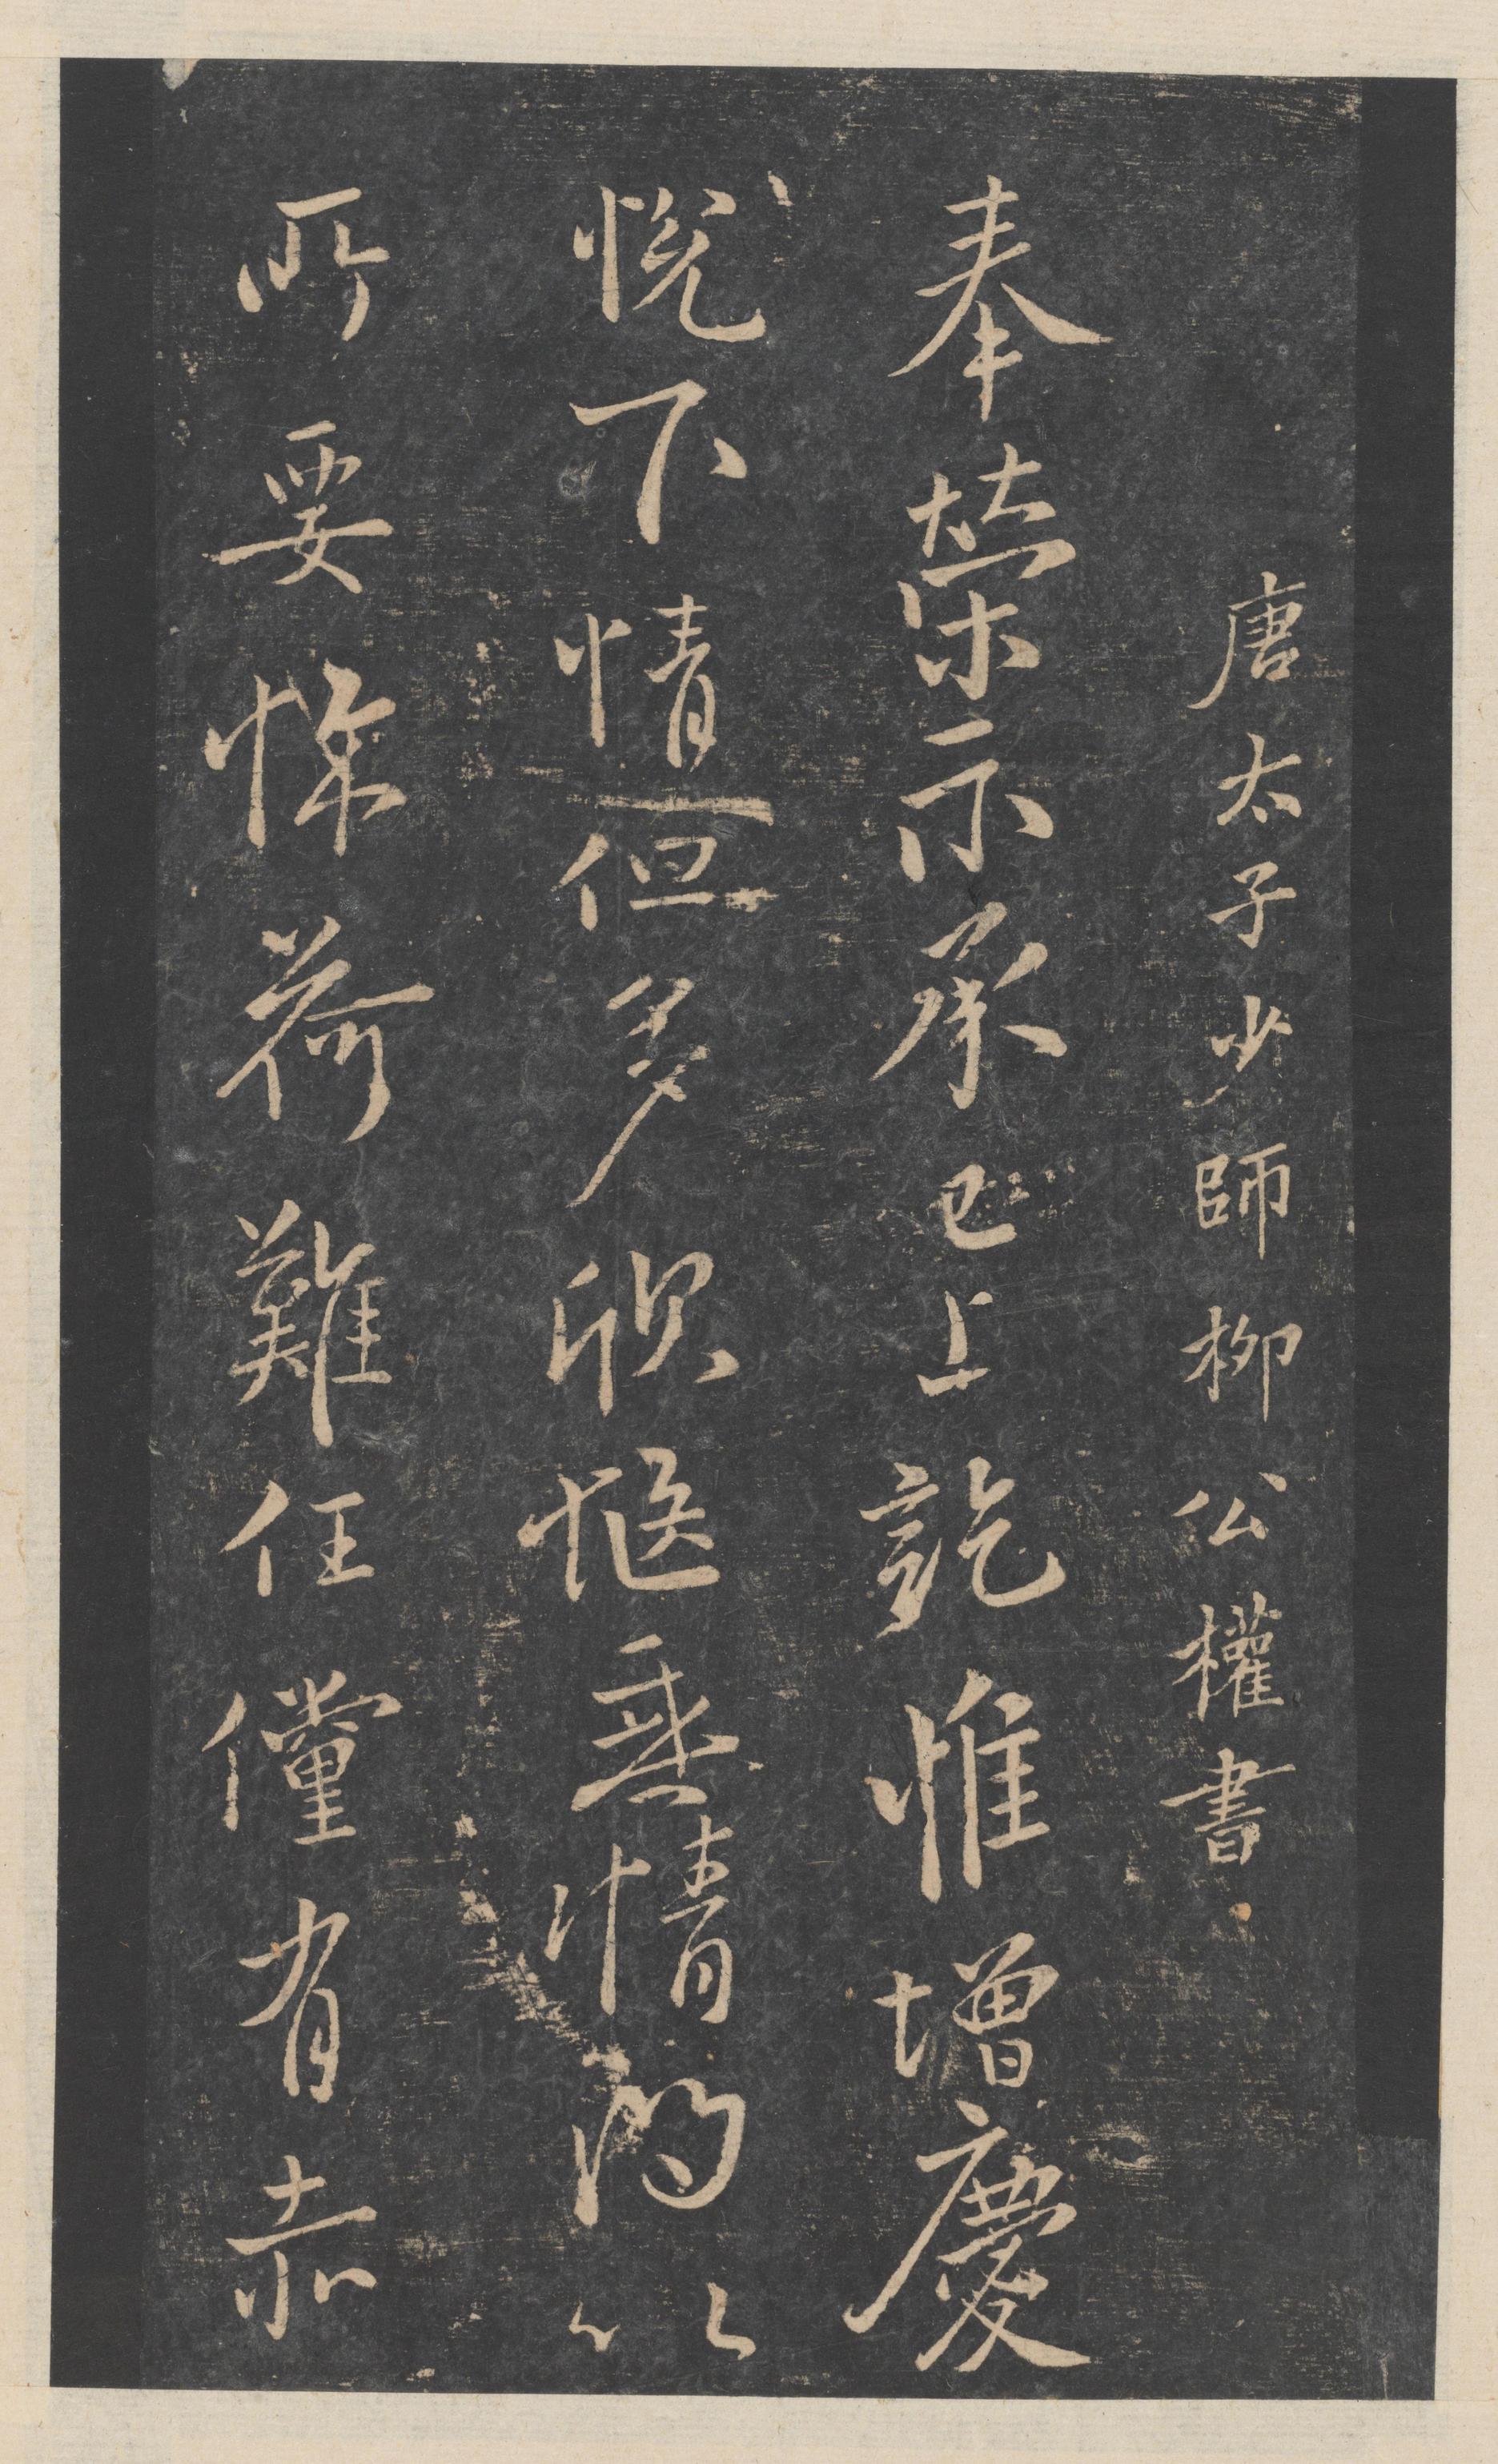 唐太子少師柳公權書
奉榮示承已上訖惟增慶
悅下情但多欣愜垂情以
所要悚荷難任儻有赤